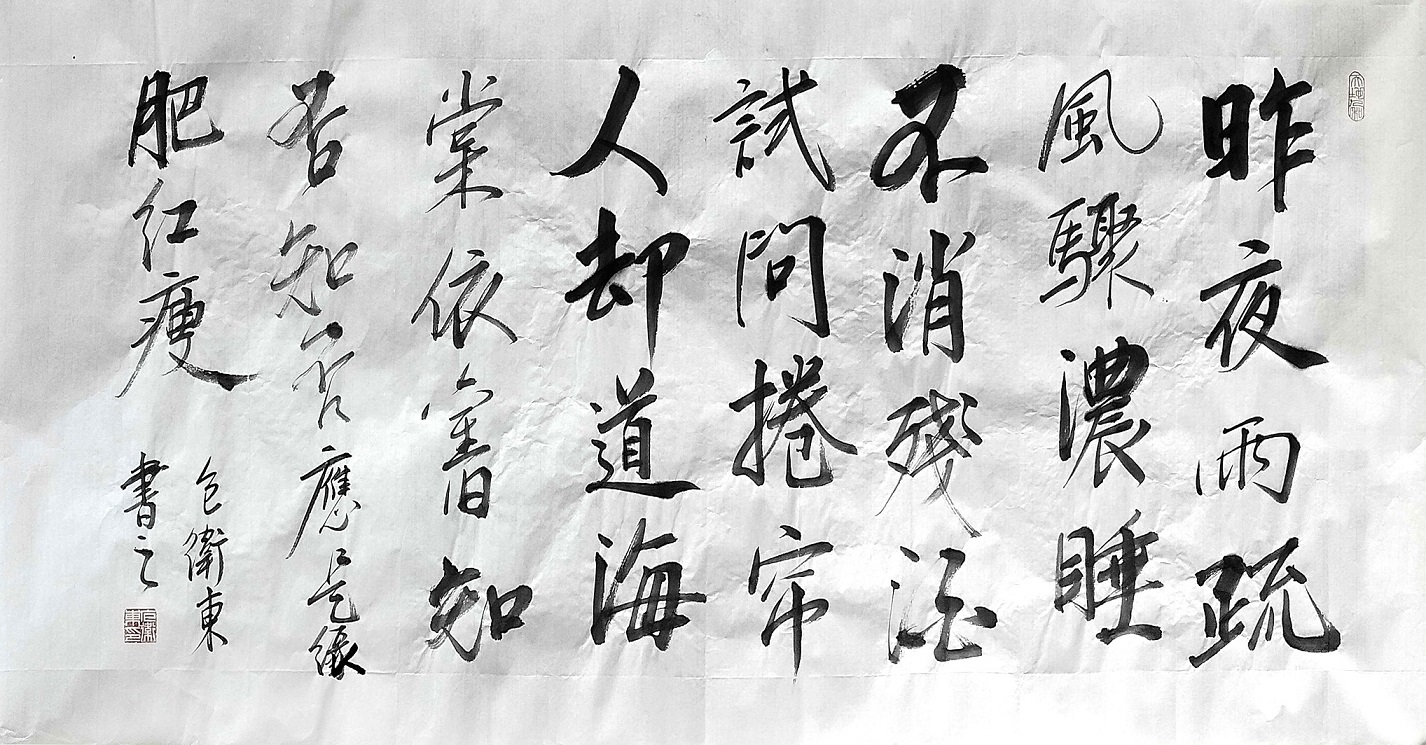 昨夜雨疏
風驟濃睡
不消殘酒
試問捲帘
人却道海
棠依舊知
否知否應是緑
肥紅瘦
包衛東
書之